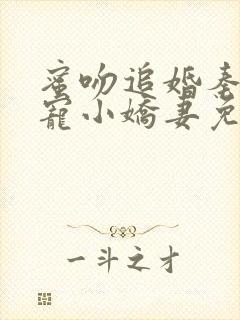 蜜吻追婚
寵小嬌妻
一斗之才